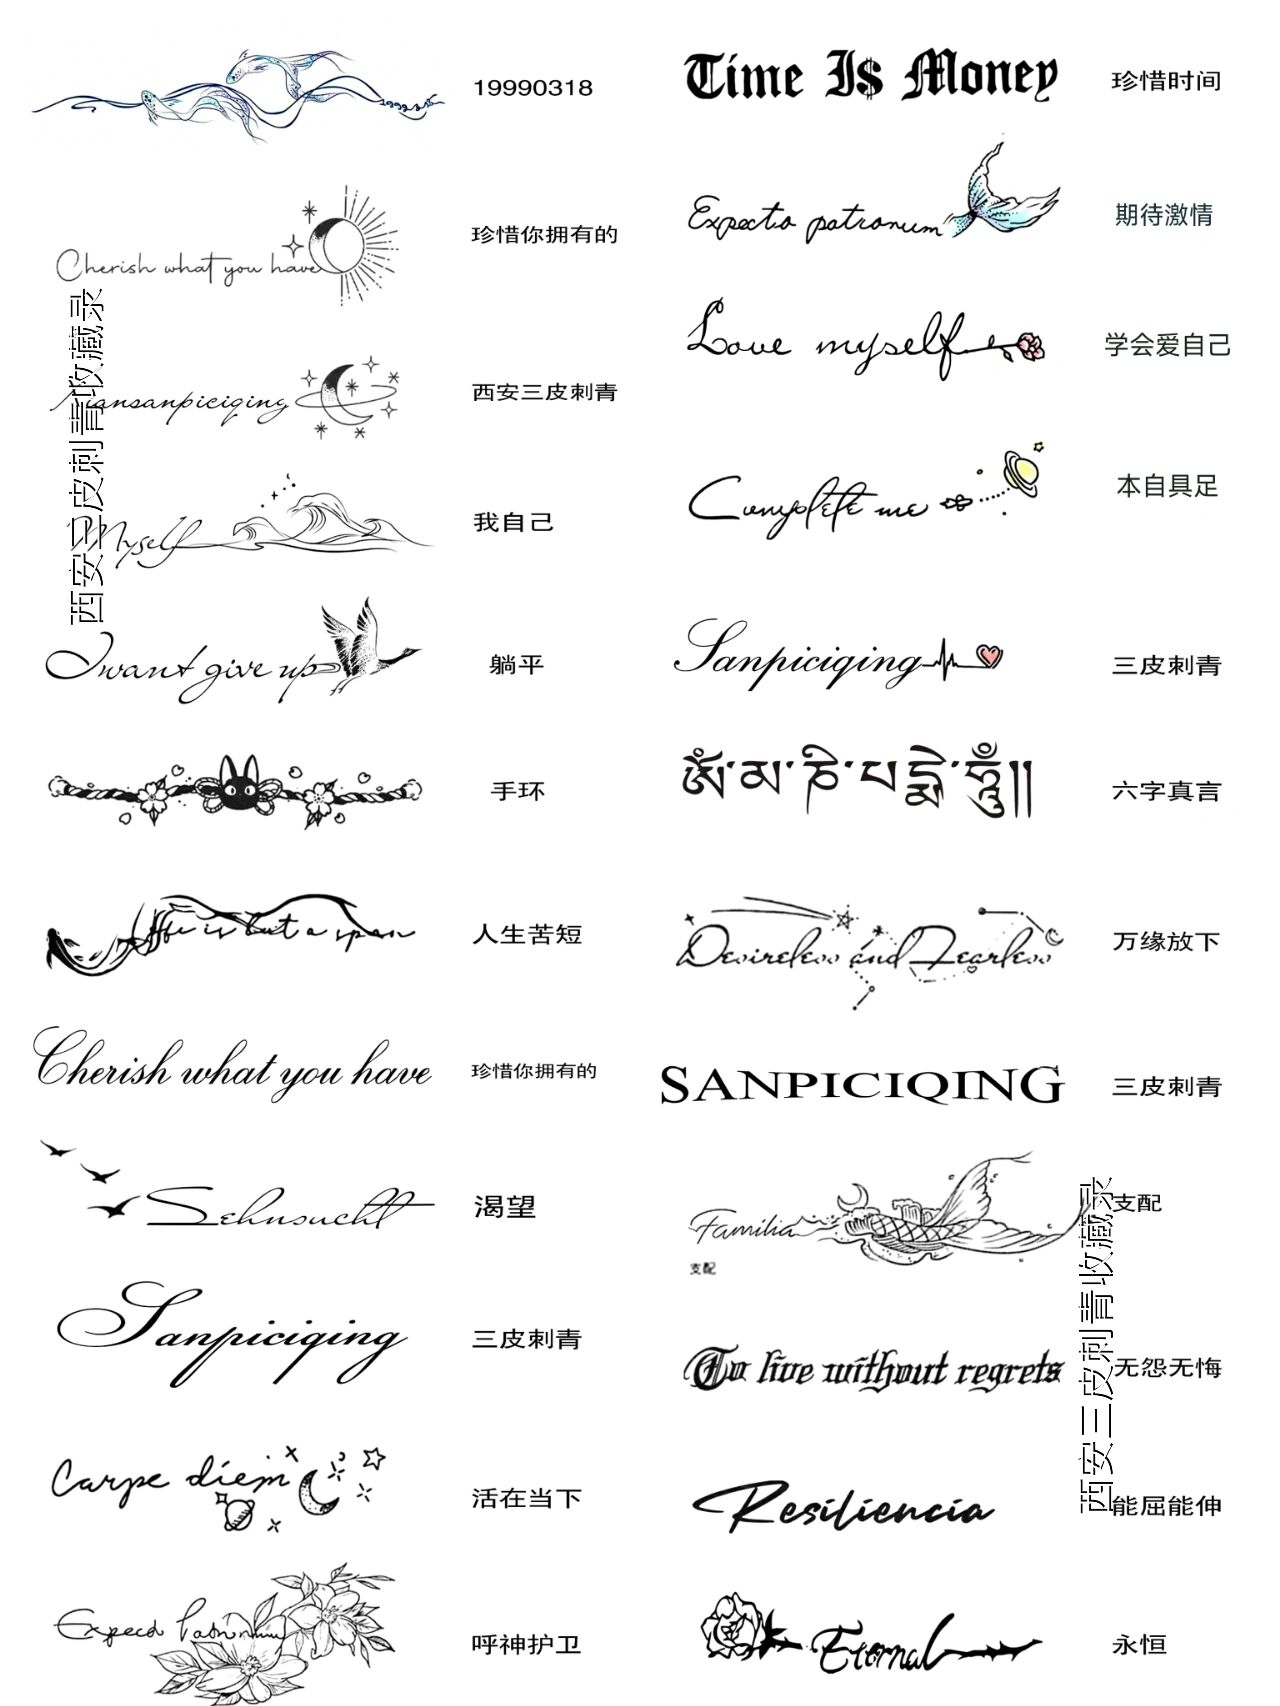 19990318
Cherish what you have
珍惜你拥有的
Xiansanpiciqing
西安三皮刺青
Myself
我自己
I want give up
躺平
手环
life is but a span
人生苦短
Cherish what you have
珍惜你拥有的
Sehnsucht
渴望
Sanpiciqing
三皮刺青
Carpe diem
活在当下
Expecd Patronum
呼神护卫
西安三皮刺青收藏录
Time I$ Money
珍惜时间
Expecto patronum
期待激情
Love myself
学会爱自己
Complete me
本自具足
Sanpiciqing
三皮刺青
ༀ་མ་ཎི་པདྨེ་ཧཱུྃ༎
六字真言
Desireless and Fearless
万缘放下
SANPICIQING
三皮刺青
Familia
支配
支配
To live without regrets
无怨无悔
Resiliencia
能屈能伸
Eternal
永恒
西安三皮刺青收藏录